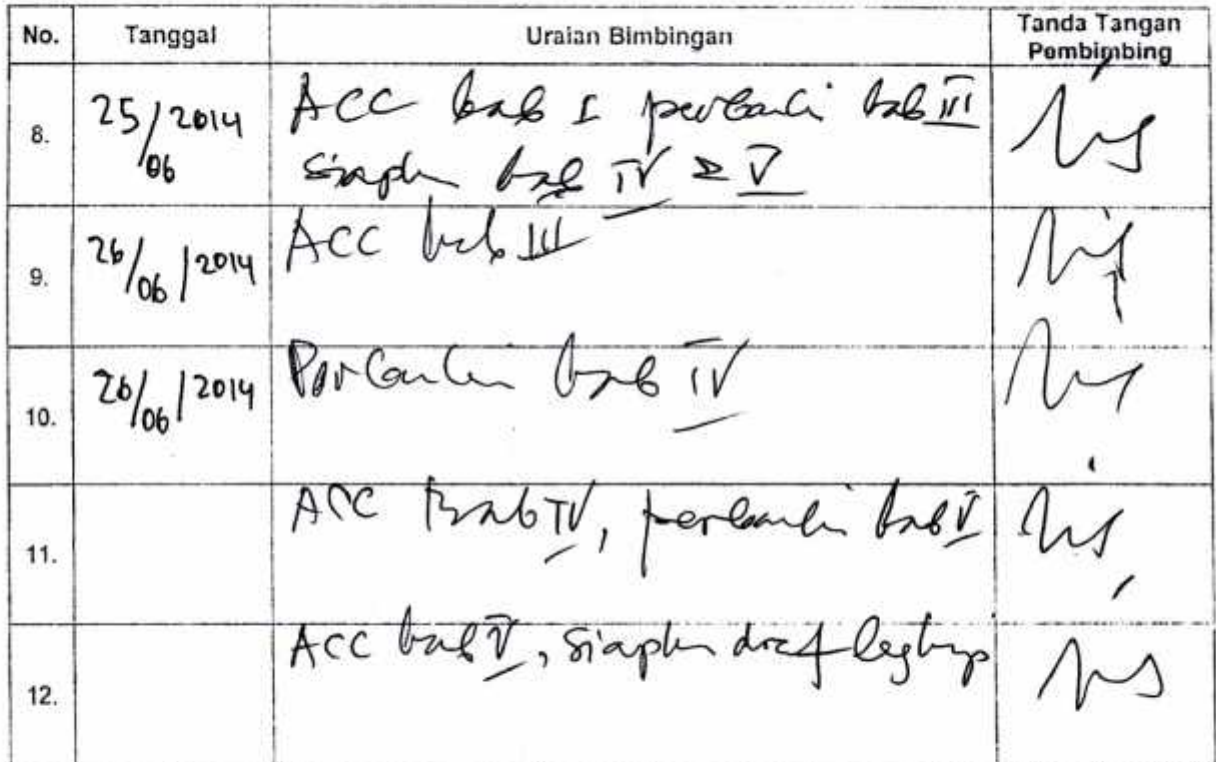 No. Tanggal Uraian Bimbingan Tanda Tangan
Pembimbing
8. 25/06/2014 ACC bab I perbaiki bab III
siapkan bab IV & V
9. 26/06/2014 ACC bab III
10. 26/06/2014 Perbaiki bab IV
11. ACC bab IV, perbaiki bab V
12. ACC bab V, siapkan draf lengkap